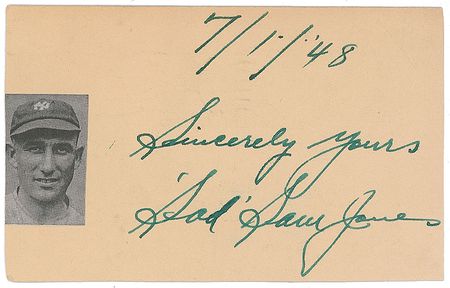 7/1/'48
Sincerely Yours
'Sad' Sam Jones